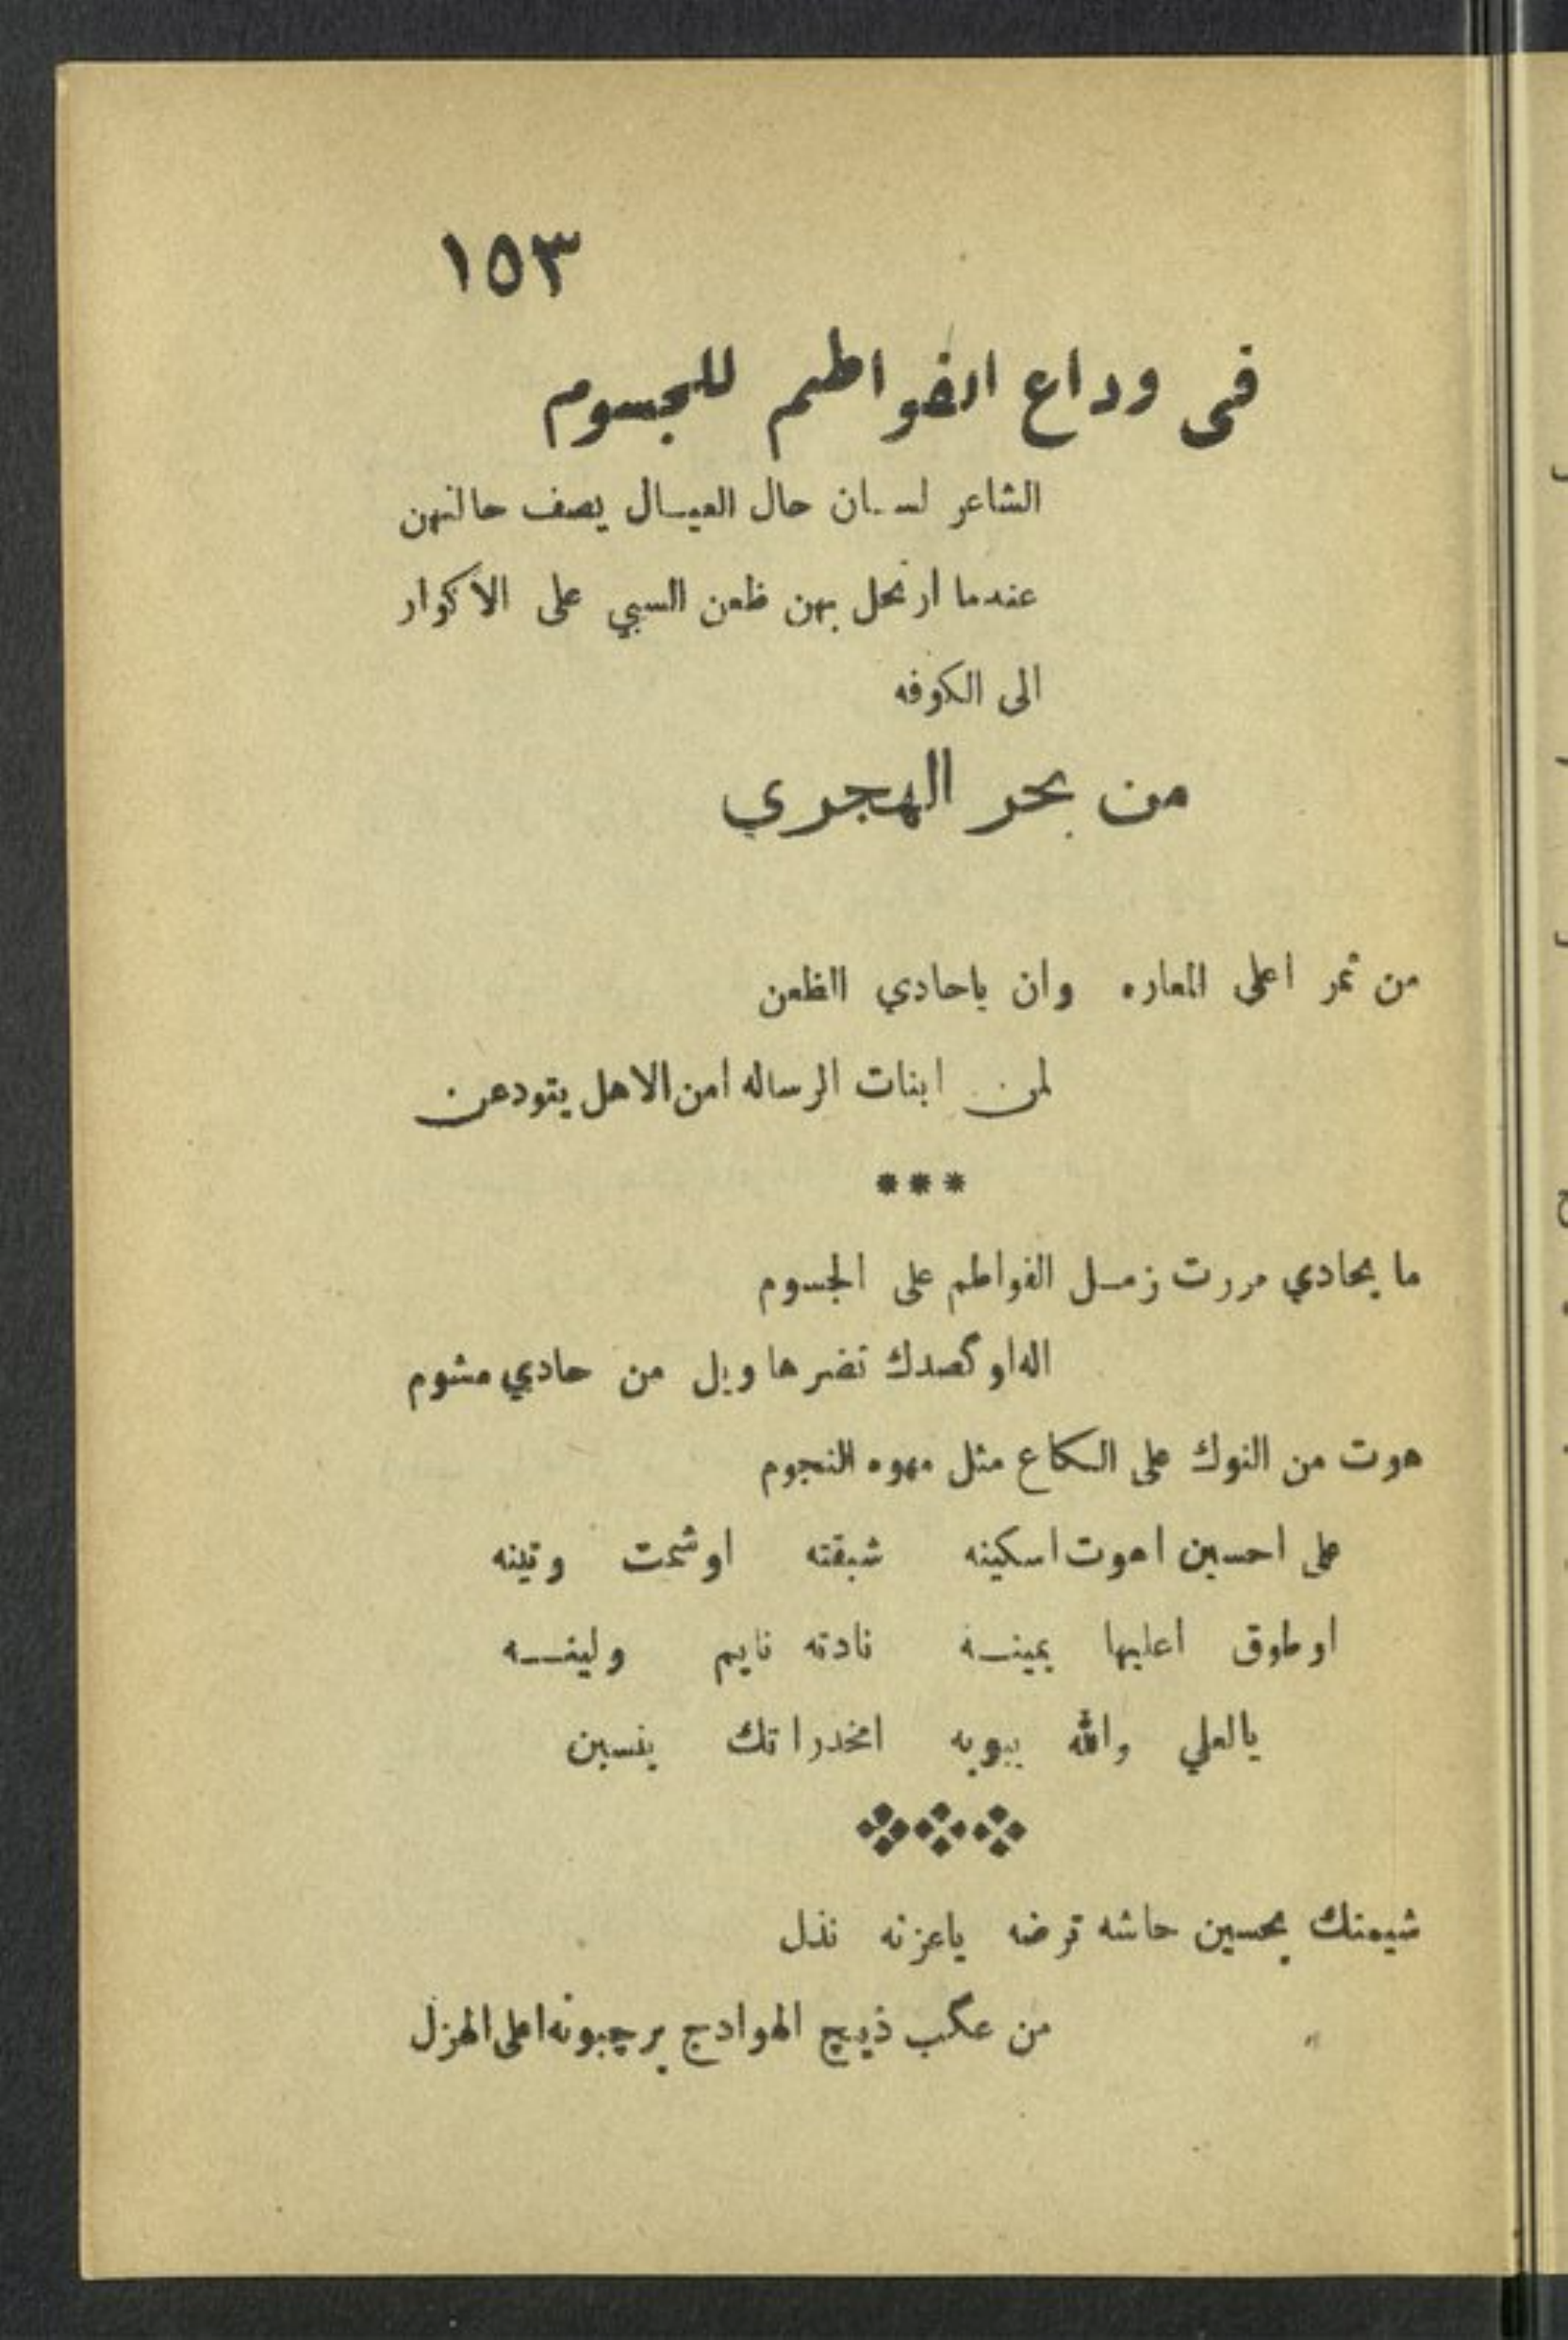 ١٥٣
في وداع الفواطم للجسوم
الشاعر لسان حال العيال يصف حالتهن
عندما ارتحل بهن ظعن السبي على الاكوار
الى الكوفه
من بحر الهجري
من تمر اعلى المعاره وان ياحادي الظعن
لمن ابنات الرساله امن الاهل يتودعن
***
ما يحادي مررت زمل الفواطم على الجسوم
اله او گصدك تضرها ويل من حادي مشوم
هوت من النوك على الگاع مثل مهوه النجوم
على احسين اهوت اسكينه شبقته اوشمت وتينه
او طوق اعليها يمينه نادته نايم ولينه
يالعلي والله يبويه امخدراتك ينسبن
شيمتك يحسين حاشه ترضه ياعزنه نذل
من عگب ذيچ الهوادج يرچبونه اعلى الهزل